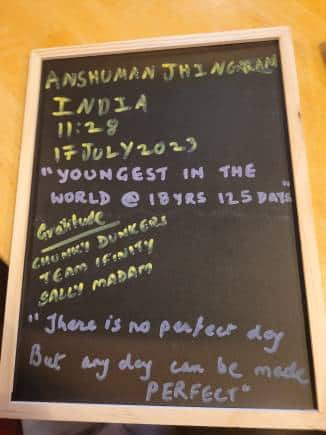 ANSHUMAN JHINGRAN
INDIA
11:28
17 JULY 2023
"YOUNGEST IN THE
WORLD @ 18 YRS 125 DAYS"
Gratitude
CHUNKY DUNKERS
TEAM IFINITY
SALLY MADAM
"There is no perfect day
But any day can be made
PERFECT"